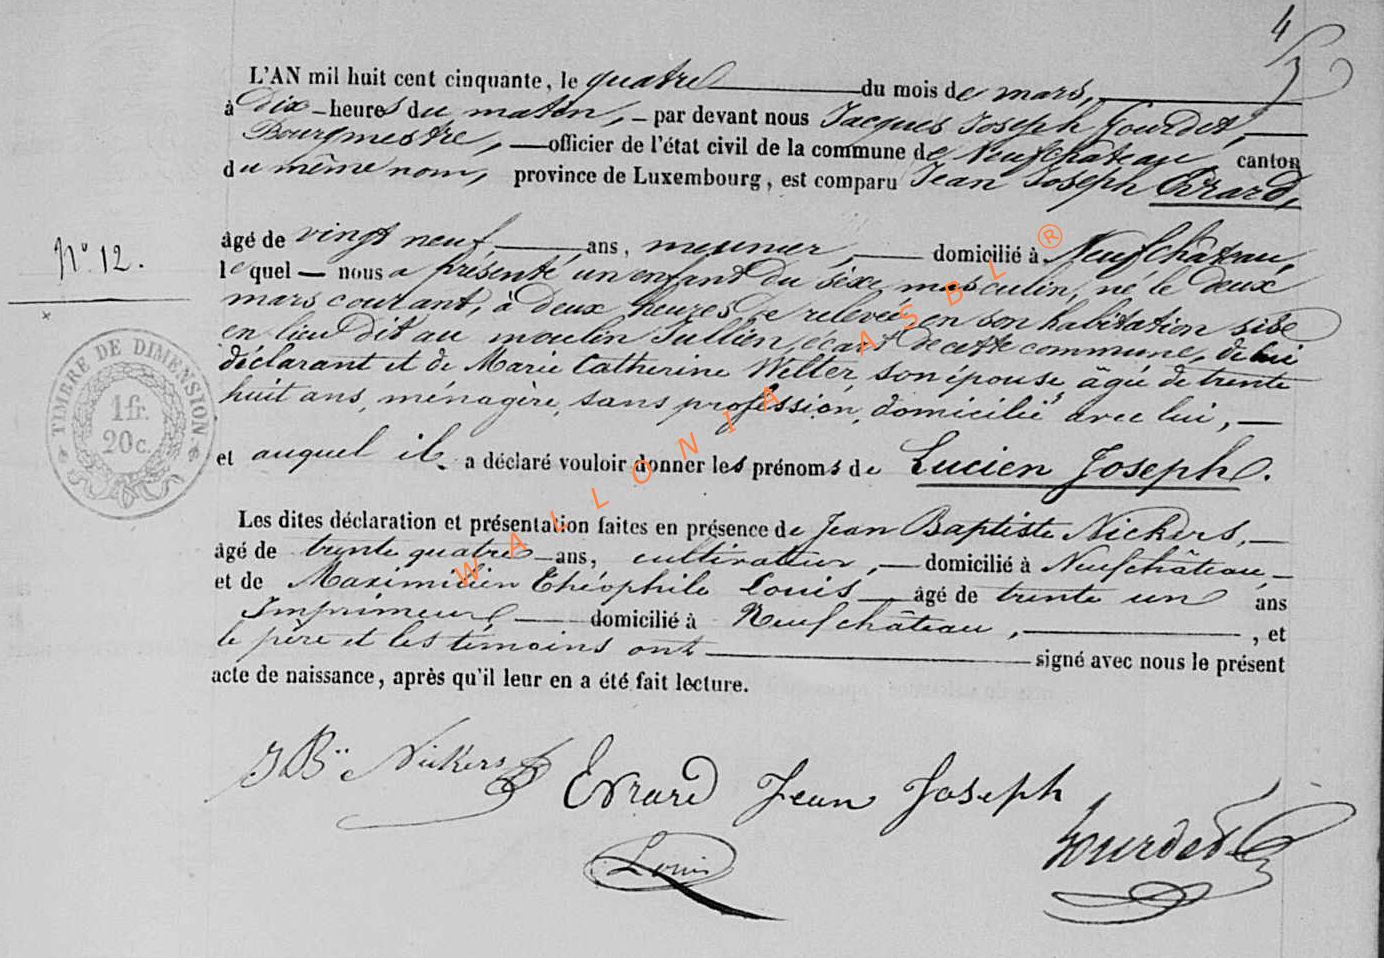 4
L'AN mil huit cent cinquante, le quatre du mois de mars,
à Dix heures du matin, par devant nous Jacques Joseph Gourdet,
Bourgmestre, officier de l'état civil de la commune de Neufchâteau, canton
du même nom, province de Luxembourg, est comparu Jean Joseph Evrard,
âgé de vingt neuf ans, meunier, domicilié à Neufchâteau,
N° 12.
lequel nous a présenté un enfant du sexe masculin, né le deux
mars courant, à deux heures de relevée, en son habitation sise
en lieu dit au moulin Jullien, écart de cette commune, de lui
déclarant et de Marie Catherine Welter, son épouse, âgée de trente
huit ans, ménagère, sans profession, domicilié avec lui,
TIMBRE DE DIMENSION.
1 fr.
20 c.
et auquel il a déclaré vouloir donner les prénoms de Lucien Joseph.
Les dites déclaration et présentation faites en présence de Jean Baptiste Nickers,
âgé de trente quatre ans, cultivateur, domicilié à Neufchâteau,
et de Maximilien Théophile Louis âgé de trente un ans
Imprimeur domicilié à Neufchâteau, , et
le père et les témoins ont signé avec nous le présent
acte de naissance, après qu'il leur en a été fait lecture.
JBte Nickers
Evrard Jean Joseph
Louis
Gourdet
WALLONIA ASBL ®